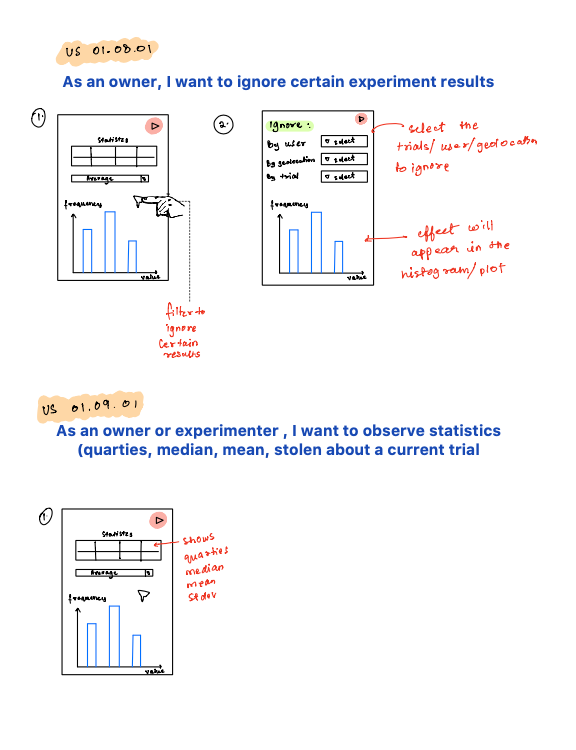 US 01.08.01
As an owner, I want to ignore certain experiment results
1.
Statistcs
Average
frequency
value
filter to
ignore
Certain
results
2.
Ignore :
By user
select
By geolocation
select
By trial
select
frequency
value
select the
trials/user/geolocation
to ignore
effect will
appear in the
histogram/plot
US 01.09.01
As an owner or experimenter , I want to observe statistics
(quarties, median, mean, stolen about a current trial
1.
Statistcs
Average
frequency
value
shows
quarties
median
mean
stdov